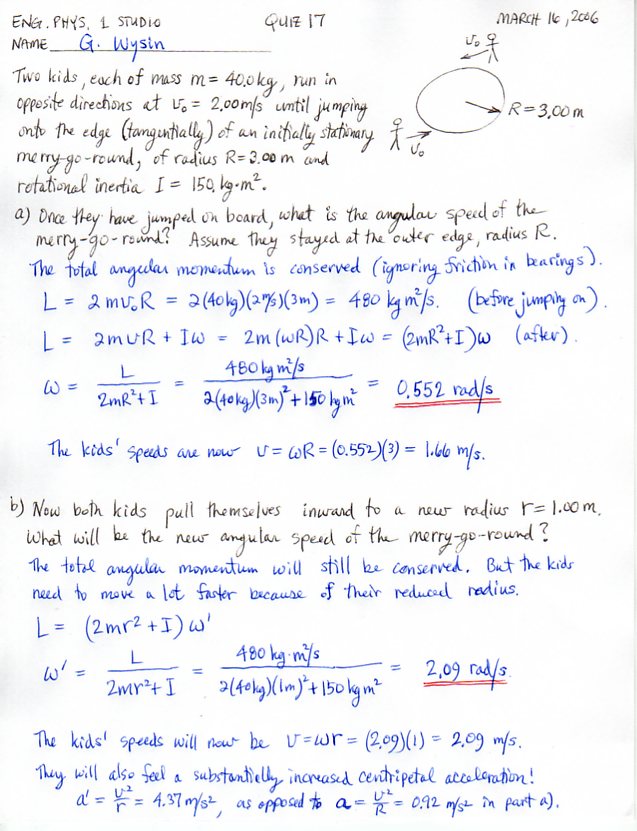 ENG. PHYS. 1 STUDIO QUIZ 17 MARCH 16, 2006
NAME G. Wysin
v₀
Two kids, each of mass m = 40.0kg, run in
opposite directions at v₀ = 2.00m/s until jumping
onto the edge (tangentially) of an initially stationary
merry-go-round, of radius R = 3.00 m and
rotational inertia I = 150. kg·m².
R = 3.00 m
v₀
a) Once they have jumped on board, what is the angular speed of the
merry-go-round? Assume they stayed at the outer edge, radius R.
The total angular momentum is conserved (ignoring friction in bearings).
L = 2mv₀R = 2(40kg)(2m/s)(3m) = 480 kg m²/s. (before jumping on).
L = 2mvR + Iω = 2m(ωR)R + Iω = (2mR²+I)ω (after).
ω = L / (2mR²+I) = 480 kg m²/s / (2(40kg)(3m)²+150 kg m²) = 0.552 rad/s
The kids' speeds are now v = ωR = (0.552)(3) = 1.66 m/s.
b) Now both kids pull themselves inward to a new radius r = 1.00 m.
What will be the new angular speed of the merry-go-round?
The total angular momentum will still be conserved. But the kids
need to move a lot faster because of their reduced radius.
L = (2mr² + I) ω'
ω' = L / (2mr²+I) = 480 kg·m²/s / (2(40kg)(1m)²+150 kg m²) = 2.09 rad/s.
The kids' speeds will now be v = ωr = (2.09)(1) = 2.09 m/s.
They will also feel a substantially increased centripetal acceleration!
a' = v²/r = 4.37 m/s², as opposed to a = v²/R = 0.92 m/s² in part a).